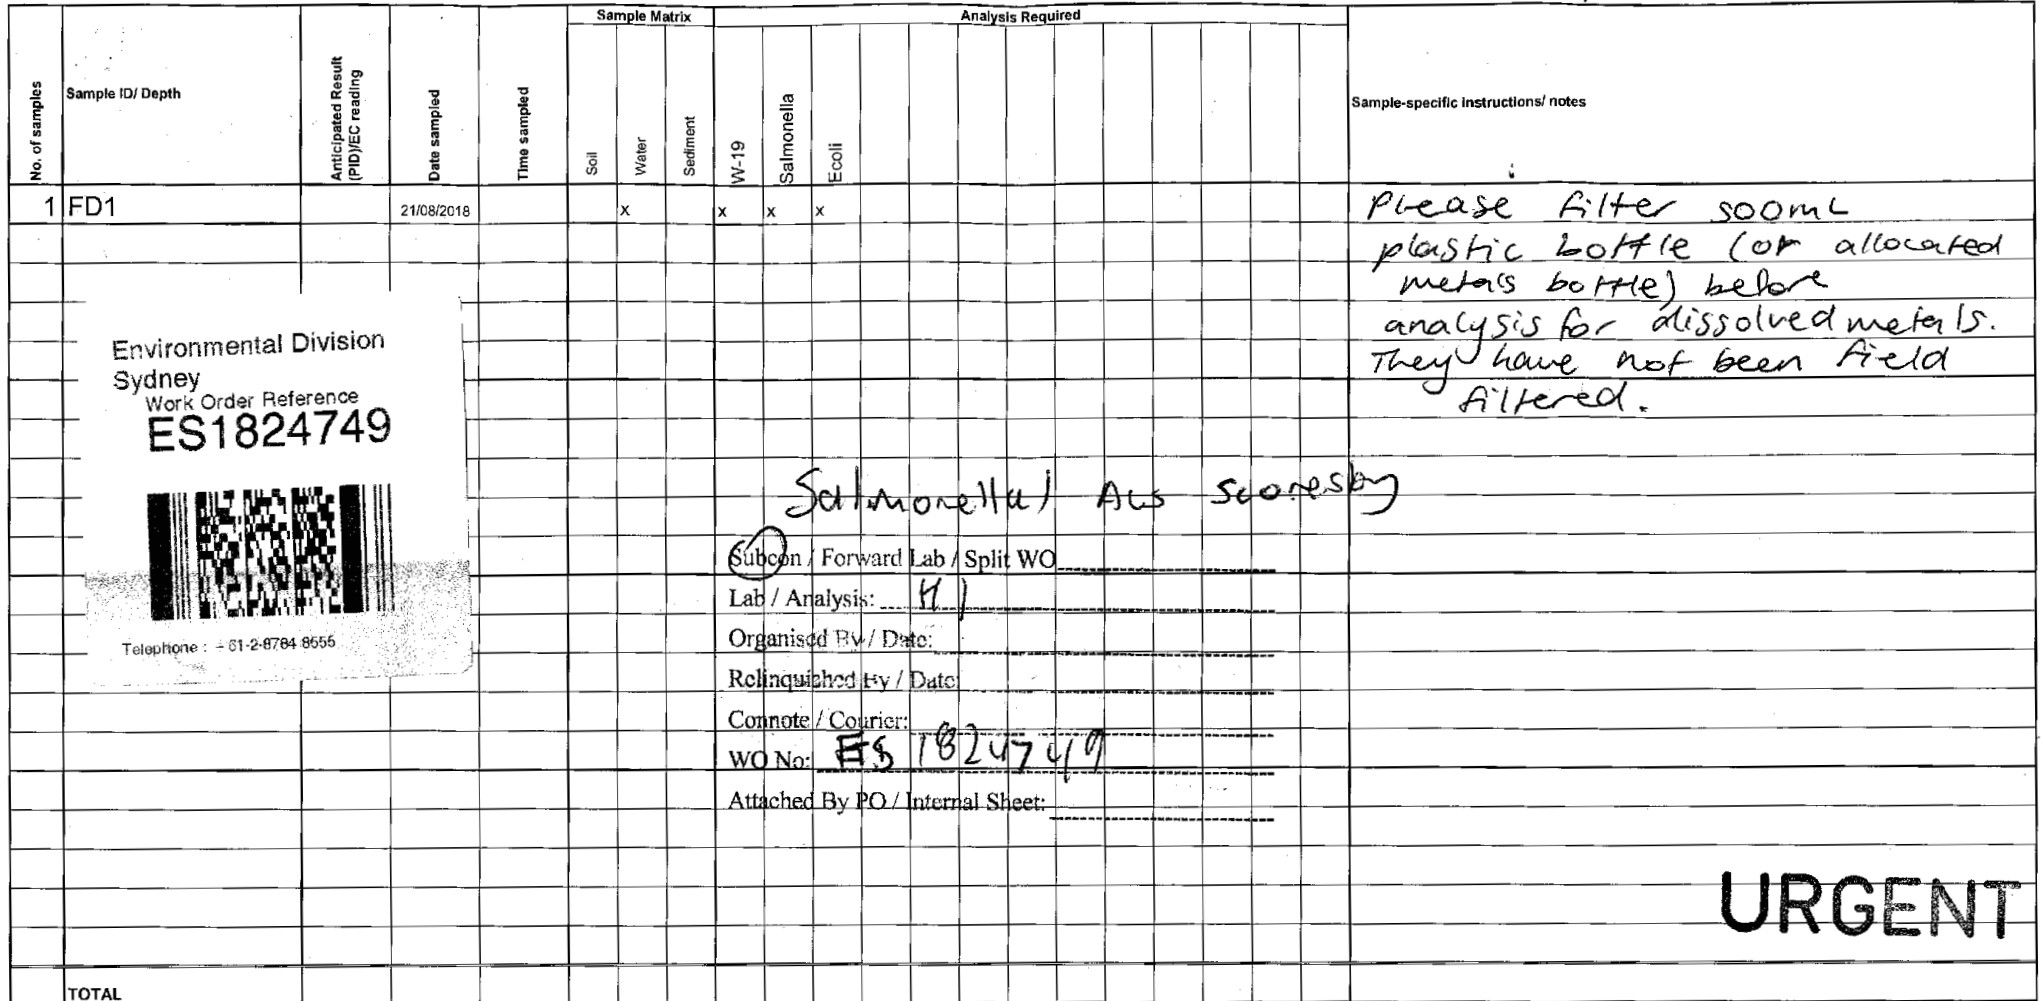 Sample Matrix
Analysis Required
No. of samples
Sample ID/ Depth
Anticipated Result
(PID)/EC reading
Date sampled
Time sampled
Soil
Water
Sediment
W-19
Salmonella
Ecoli
Sample-specific instructions/ notes
1 FD1 21/08/2018 x x x x
Please filter 500mL
plastic bottle (or allocated
metals bottle) before
analysis for dissolved metals.
They have not been field
filtered.
Environmental Division
Sydney
Work Order Reference
ES1824749
Telephone : + 61-2-8784 8555
Salmonella / ALS Scoresby
Subcon / Forward Lab / Split WO
Lab / Analysis:
Organised By / Date:
Relinquished By / Date:
Connote / Courier:
WO No: ES 1824749
Attached By PO / Internal Sheet:
URGENT
TOTAL